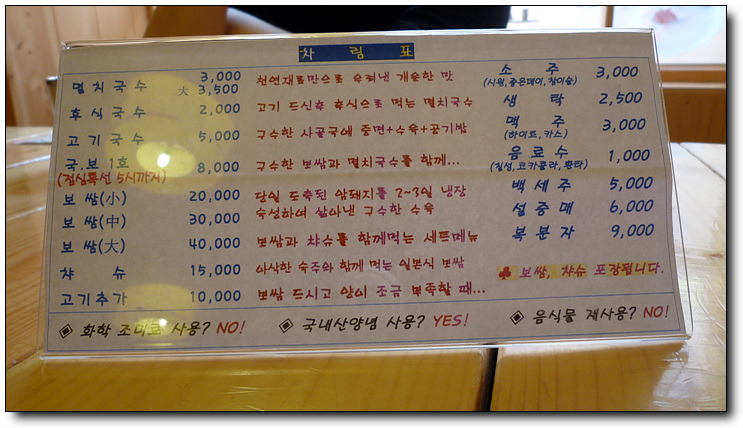 차 림 표
멸치국수 3,000 천연재료만으로 우려낸 개운한 맛
大 3,500
후식국수 2,000 고기 드신후 후식으로 먹는 멸치국수
고기국수 5,000 구수한 사골국에 중면+수육+공기밥
국.보 1호 8,000 구수한 보쌈과 멸치국수를 함께...
(점심특선 5시까지)
보 쌈(小) 20,000 당일 도축된 암돼지를 2~3일 냉장
보 쌈(中) 30,000 숙성하여 삶아낸 구수한 수육
보 쌈(大) 40,000 보쌈과 챠슈를 함께먹는 세트메뉴
챠 슈 15,000 아삭한 숙주와 함께 먹는 일본식 보쌈
고기추가 10,000 보쌈 드시고 양이 조금 부족할 때...
소 주 3,000
(시원,좋은데이,참이슬)
생 탁 2,500
맥 주 3,000
(하이트,카스)
음 료 수 1,000
(칠성,코카콜라,환타)
백 세 주 5,000
설 중 매 6,000
복 분 자 9,000
♣ 보쌈, 챠슈 포장됩니다.
◈ 화학 조미료 사용? NO!
◈ 국내산양념 사용? YES!
◈ 음식물 재사용? NO!